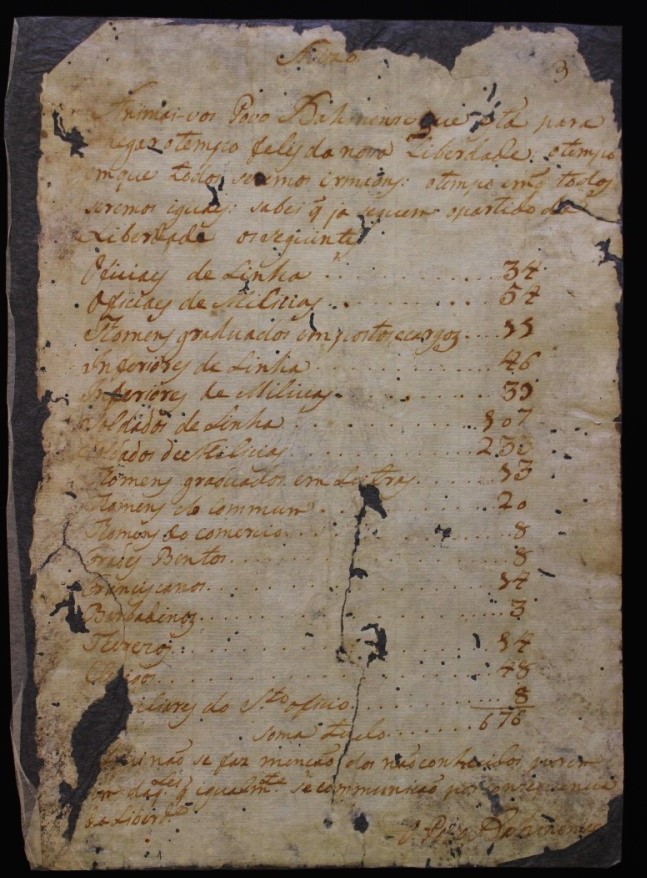 3
Animai-vos Povo Bahinense que está para
chegar o tempo feliz da nova Liberdade: o tempo
em que todos seremos irmãons: o tempo em q todos
seremos iguaes: sabei q já seguem o partido da
Liberdade os seguintes
Oficiaes de Linha 34
Oficiaes de Milicias 54
Homens graduados em postos e cargos 11
Inferiores de Linha 46
Inferiores de Milicias 39
Soldados de Linha 107
Soldados de Milicias 230
Homens graduados em Letras 13
Homens do commum 20
Homens do comercio 8
Frades Bentos 8
Franciscanos 14
Barbadinos 3
Therezos 14
Clerigos 48
Familiares do S.to oficio 8
soma tudo 676
não se faz menção dos não conhecidos porem
q igualm.te se communicão por consequencia
da Liberd.e